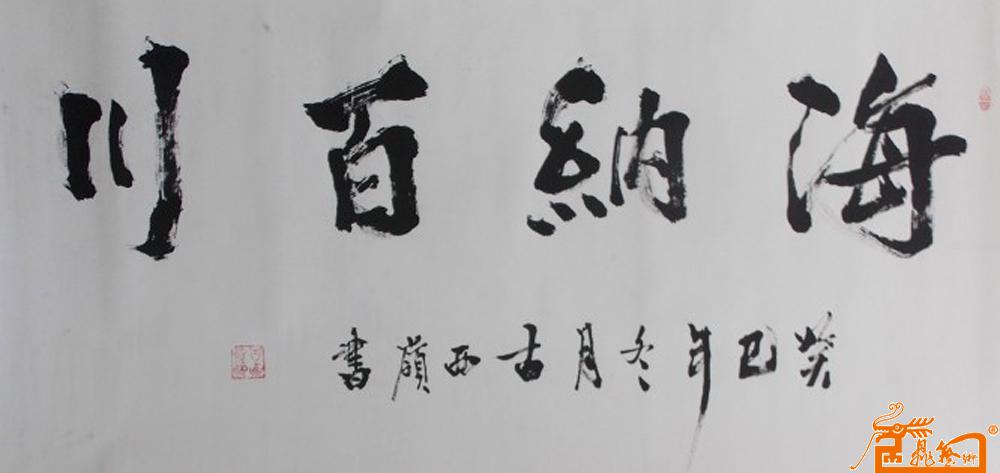 海納百川
癸巳年冬月古西嶺書